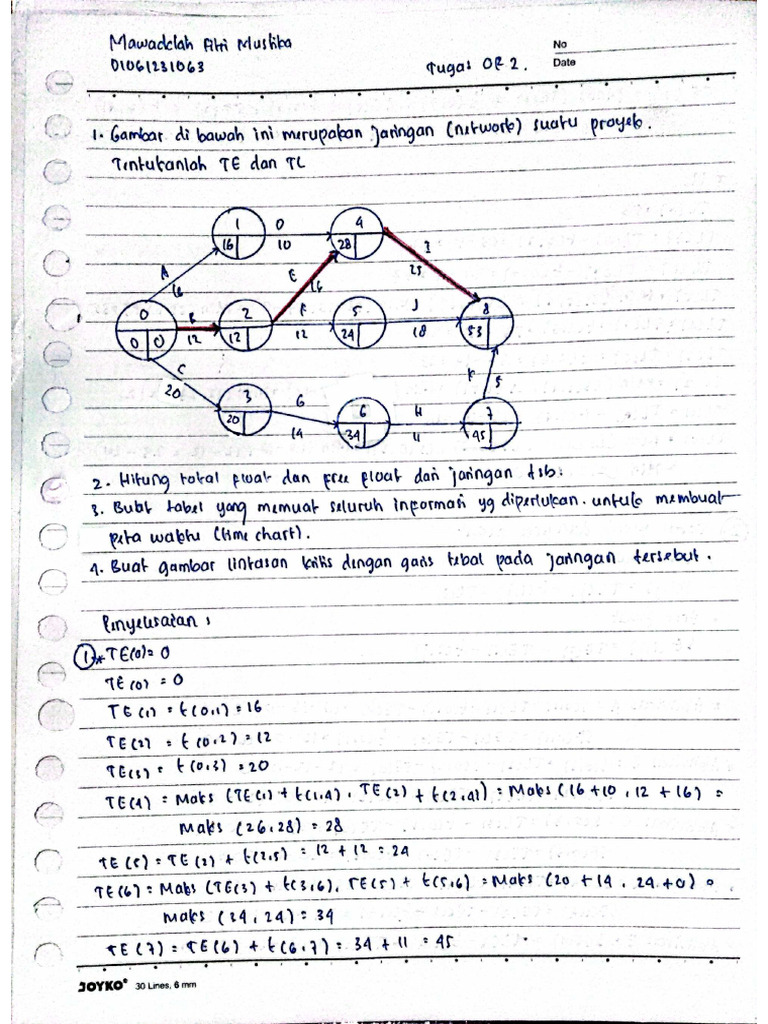 Mawaddah Fitri Mustika
01061231063
Tugas OR 2.
No
Date
1. Gambar di bawah ini merupakan jaringan (network) suatu proyek.
Tentukanlah TE dan TL
1 D 4
16 10 28
A E I
16 16 25
0 B 2 F 5 J 8
0 0 12 12 12 24 18 53
C K 5
20
3 G 6 H 7
20 14 34 11 45
2. Hitung total float dan free float dari jaringan tsb.
3. Buat tabel yang memuat seluruh informasi yg diperlukan. untuk membuat
peta waktu (time chart).
4. Buat gambar lintasan kritis dengan garis tebal pada jaringan tersebut.
Penyelesaian :
1 * TE(0) = 0
TE(0) = 0
TE(1) = t(0,1) = 16
TE(2) = t(0,2) = 12
TE(3) = t(0,3) = 20
TE(4) = Maks (TE(1) + t(1,4), TE(2) + t(2,4)) = Maks (16 + 10, 12 + 16) =
Maks (26,28) = 28
TE(5) = TE(2) + t(2,5) = 12 + 12 = 24
TE(6) = Maks (TE(3) + t(3,6), TE(5) + t(5,6) = Maks (20 + 14, 24 + 0) =
Maks (34, 24) = 34
TE(7) = TE(6) + t(6,7) = 34 + 11 = 45
JOYKO® 30 Lines, 6 mm